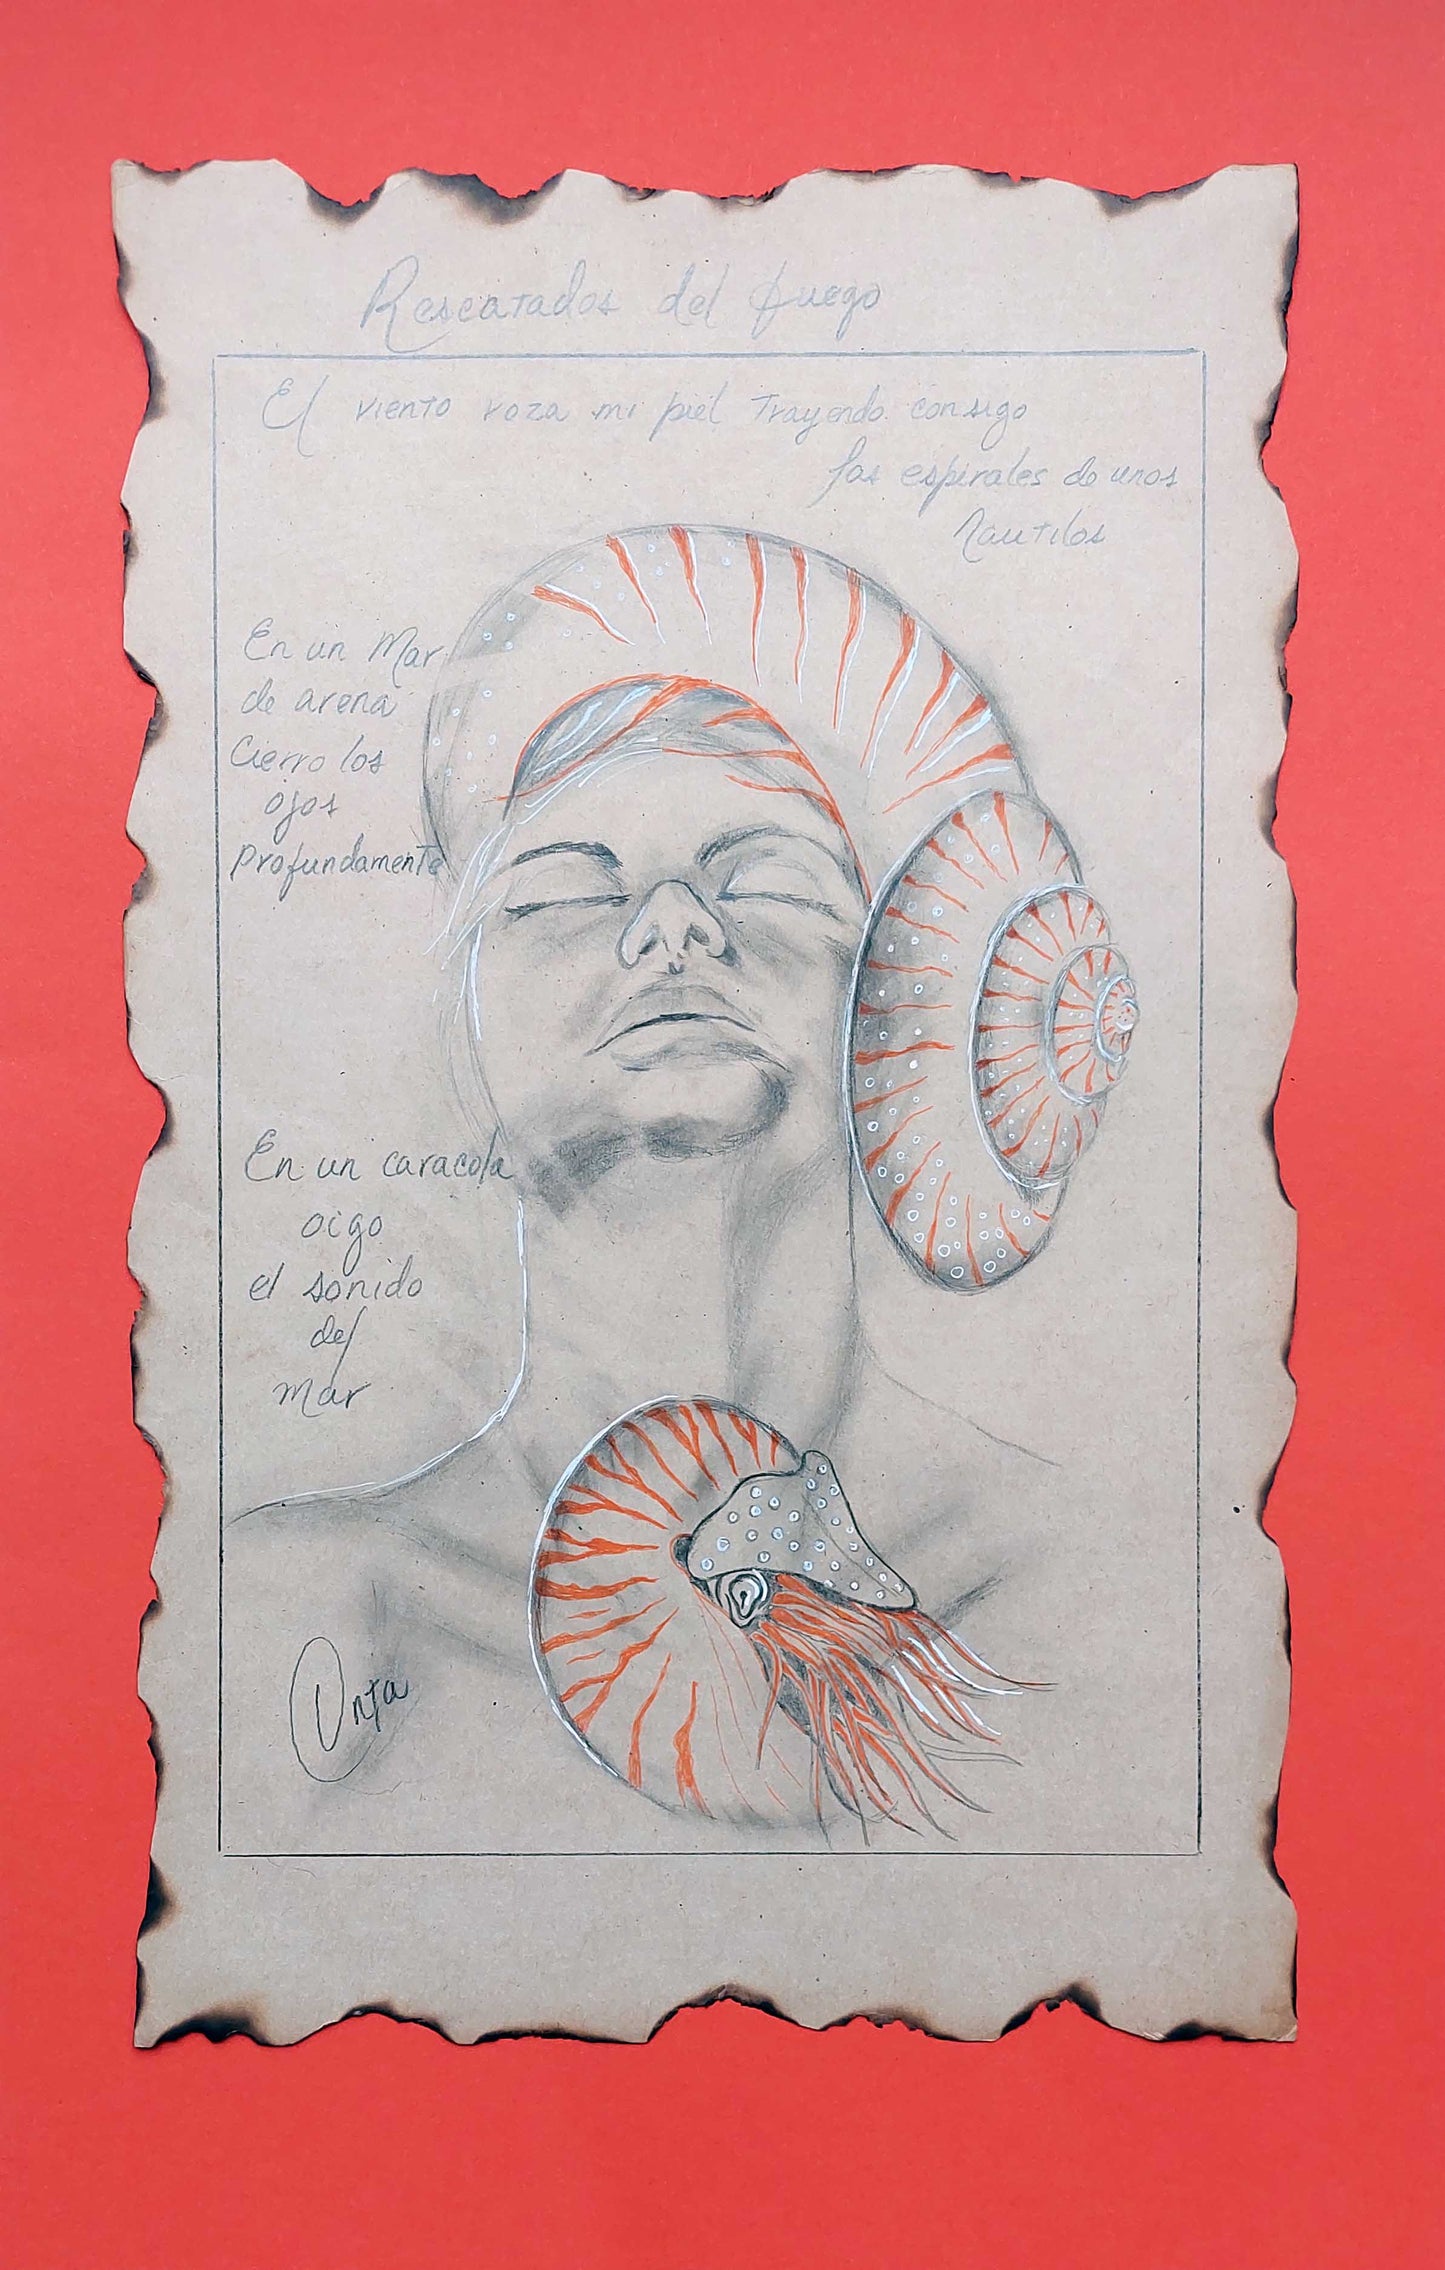 Rescatados del fuego
El viento roza mi piel trayendo consigo
las espirales de unos
Nautilos
En un Mar
de arena
Cierro los
ojos
Profundamente
En un caracola
oigo
el sonido
del
mar